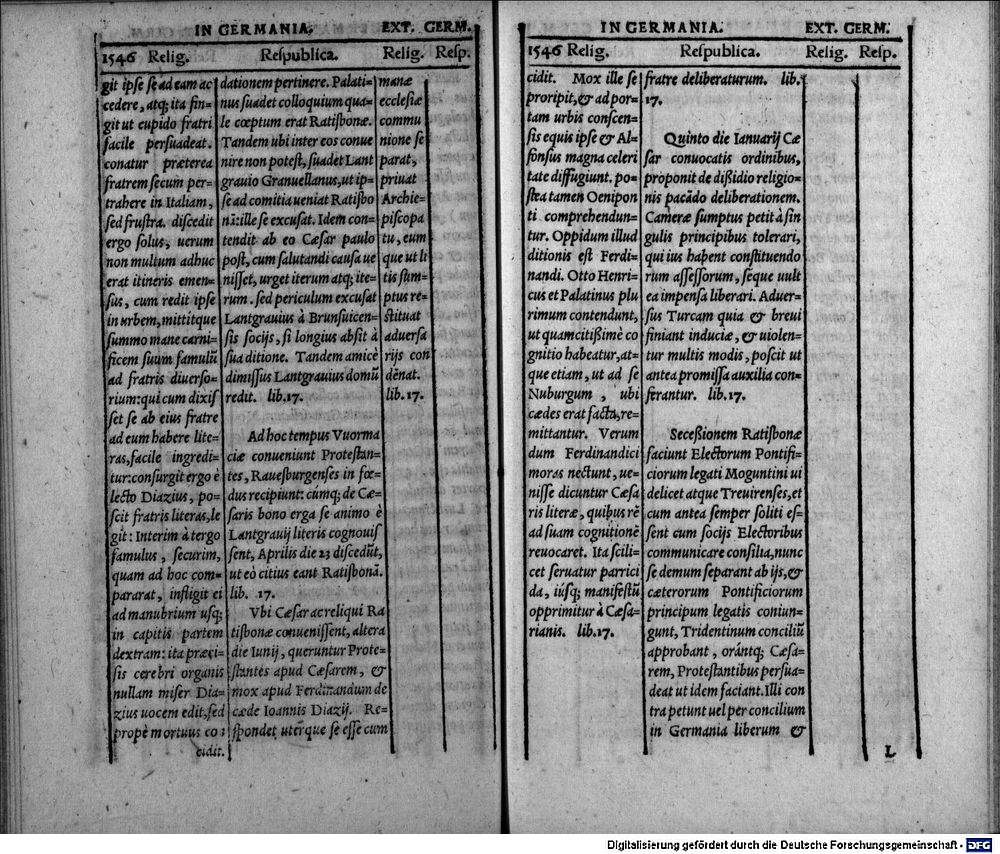 IN GERMANIA. EXT. GERM.
1546 Relig. Respublica. Relig. Resp.
git ipse se ad eam ac
cedere, atq; ita fin-
git ut cupido fratri
facile persuadeat.
conatur præterea
fratrem secum per-
trahere in Italiam,
sed frustra. discedit
ergo solus, uerum
non multum adhuc
erat itineris emen-
sus, cum redit ipse
in urbem, mittitque
summo mane carni-
ficem suum famulū
ad fratris diuerso-
rium: qui cum dixis
set se ab eius fratre
ad eum habere lite-
ras, facile ingredi-
tur: consurgit ergo è
lecto Diazius, po-
scit fratris literas, le
git: Interim à tergo
famulus, securim,
quam ad hoc com-
pararat, infligit ei
ad manubrium usq;
in capitis partem
dextram: ita præci-
sis cerebri organis
nullam miser Dia-
zius uocem edit, sed
propè mortuus co
cidit.
dationem pertinere. Palati-
nus suadet colloquium qua-
le cœptum erat Ratisbonæ.
Tandem ubi inter eos conue
nire non potest, suadet Lant
grauio Granuellanus, ut ip-
se ad comitia ueniat Ratisbo
nā: ille se excusat. Idem con-
tendit ab eo Cæsar paulo
post, cum salutandi causa ue
nisset, urget iterum atq; ite-
rum. sed periculum excusat
Lantgrauius à Brunsuicen-
sis socijs, si longius absit à
sua ditione. Tandem amicè
dimissus Lantgrauius domū
redit. lib. 17.
Ad hoc tempus Vuorma
ciæ conueniunt Protestan-
tes, Rauesburgenses in fœ-
dus recipiunt: cūmq; de Cæ-
saris bono erga se animo è
Lantgrauij literis cognouis
sent, Aprilis die 23 discedūt,
ut eò citius eant Ratisbonā.
lib. 17.
Vbi Cæsar ac reliqui Ra
tisbonæ conuenissent, altera
die Iunij, queruntur Prote-
stantes apud Cæsarem, &
mox apud Ferdinandum de
cæde Ioannis Diazij. Re-
spondet uterque se esse cum
manæ
ecclesiæ
commu
nione se
parat,
priuat
Archie-
piscopa
tu, eum
que ut li
tis sum-
ptus re-
stituat
aduersa
rijs con
dēnat.
lib. 17.
IN GERMANIA. EXT. GERM.
1546 Relig. Respublica. Relig. Resp.
cidit. Mox ille se
proripit, & ad por-
tam urbis conscen-
sis equis ipse & Al-
fonsus magna celeri
tate diffugiunt. po-
stea tamen Oenipon
ti comprehendun-
tur. Oppidum illud
ditionis est Ferdi-
nandi. Otto Henri-
cus et Palatinus plu
rimum contendunt,
ut quam citißimè co
gnitio habeatur, at-
que etiam, ut ad se
Nuburgum, ubi
cædes erat facta, re-
mittantur. Verum
dum Ferdinandici
moras nectunt, ue-
nisse dicuntur Cæsa
ris literæ, quibus rē
ad suam cognitionē
reuocaret. Ita scili-
cet seruatur parrici
da, iúsq; manifestū
opprimitur à Cæsa-
rianis. lib. 17.
fratre deliberaturum. lib.
17.
Quinto die Ianuarij Cæ
sar conuocatis ordinibus,
proponit de dißidio religio-
nis pacādo deliberationem.
Cameræ sumptus petit à sin
gulis principibus tolerari,
qui ius habent constituendo
rum assessorum, séque uult
ea impensa liberari. Aduer-
sus Turcam quia & breui
finiant induciæ, & uiolen-
tur multis modis, poscit ut
antea promissa auxilia con-
ferantur. lib. 17.
Seceßionem Ratisbonæ
faciunt Electorum Pontifi-
ciorum legati Moguntini ui
delicet atque Treuirenses, et
cum antea semper soliti es-
sent cum socijs Electoribus
communicare consilia, nunc
se demum separant ab ijs, &
cæterorum Pontificiorum
principum legatis coniun-
gunt, Tridentinum conciliū
approbant, orántq; Cæsa-
rem, Protestantibus persua-
deat ut idem faciant. Illi con
tra petunt uel per concilium
in Germania liberum &
L
Digitalisierung gefördert durch die Deutsche Forschungsgemeinschaft - DFG